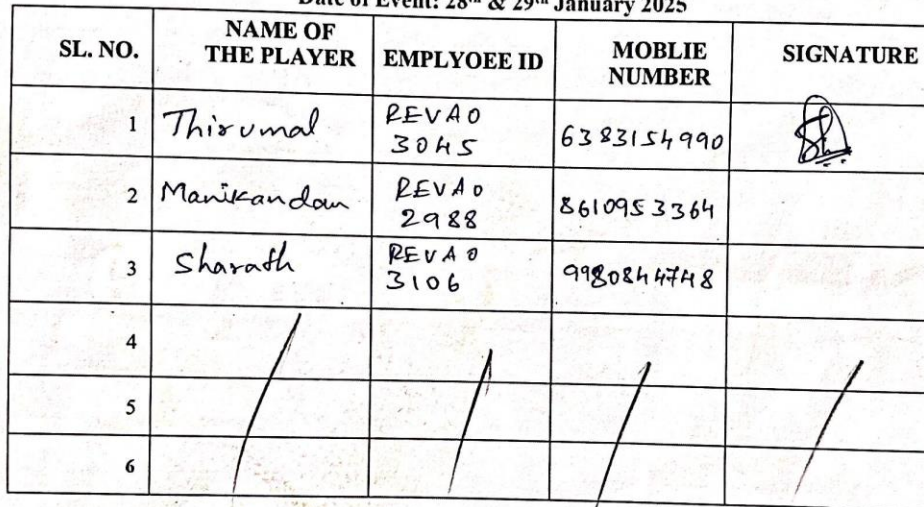 Date of Event: 28th & 29th January 2025
SL. NO. NAME OF THE PLAYER EMPLYOEE ID MOBLIE NUMBER SIGNATURE
1 Thirumal REVAO 3045 6383154990
2 Manikandan REVAO 2988 8610953364
3 Sharath REVAO 3106 9980844748
4
5
6